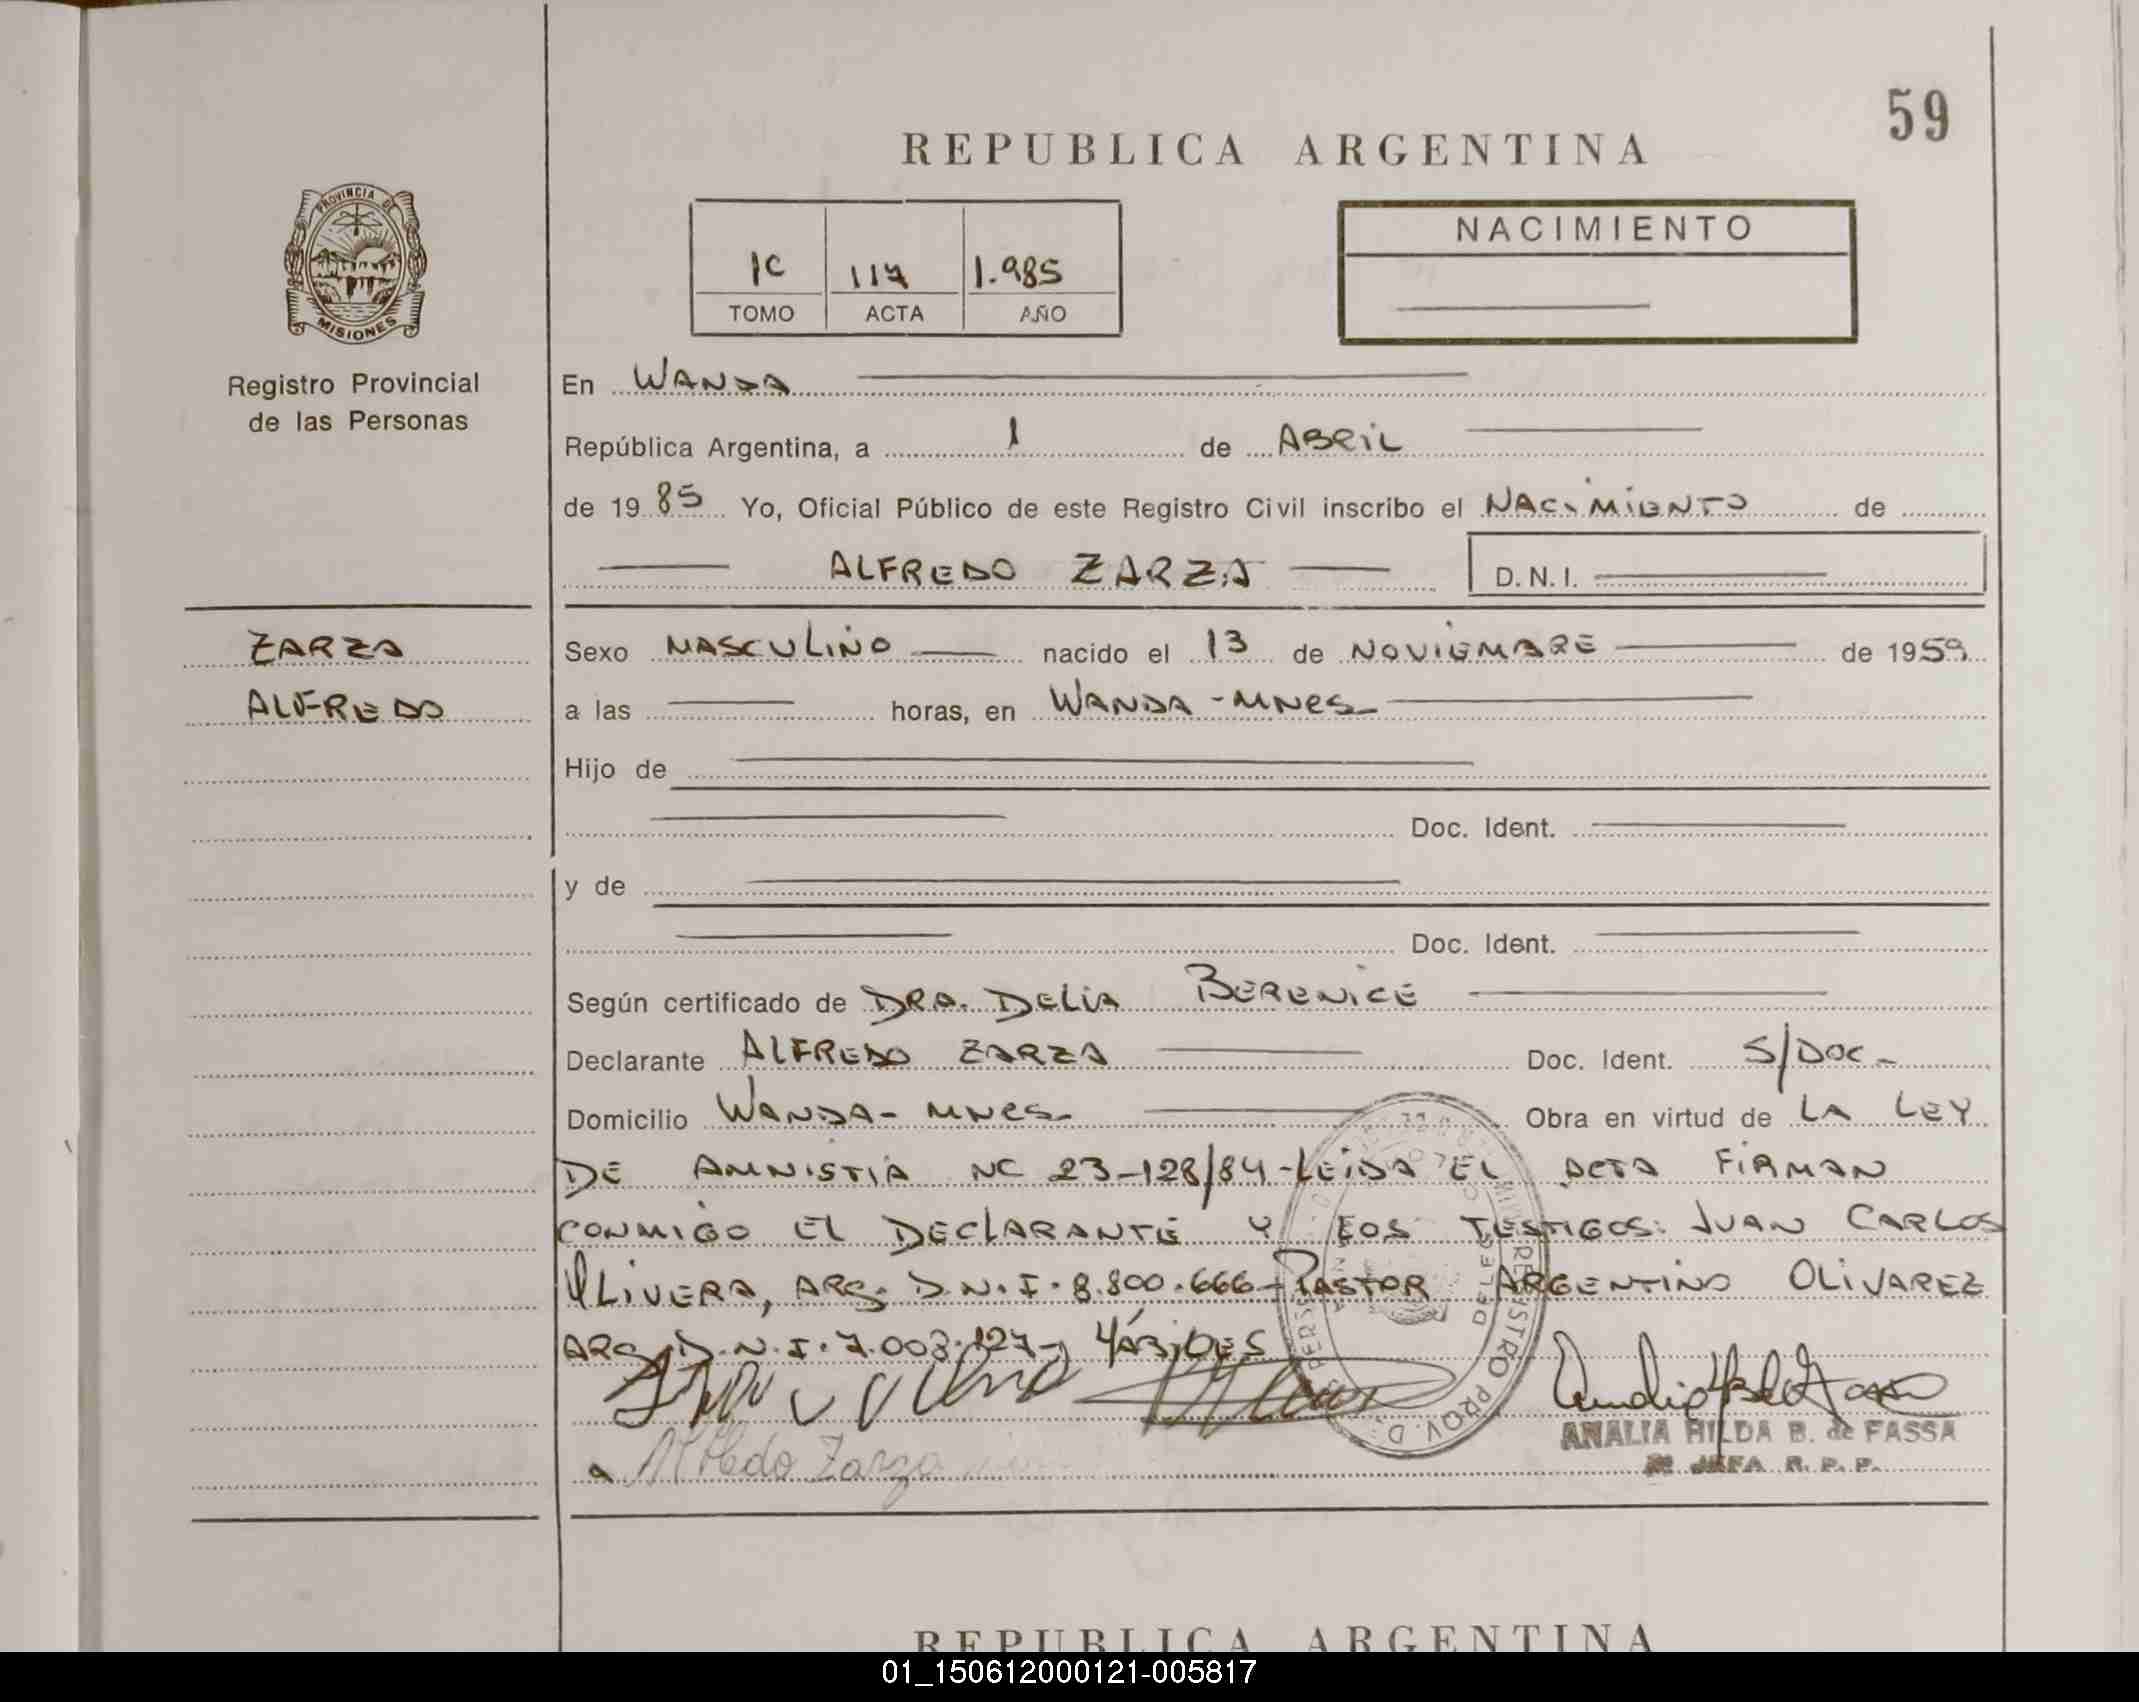 59
REPUBLICA ARGENTINA
PROVINCIA DE
MISIONES
Registro Provincial
de las Personas
1C 117 1.985
TOMO ACTA AÑO
NACIMIENTO
En WANDA
República Argentina, a 1 de ABRIL
de 1985 Yo, Oficial Público de este Registro Civil inscribo el NACIMIENTO de
ALFREDO ZARZA D.N.I.
ZARZA
ALFREDO
Sexo MASCULINO nacido el 13 de NOVIEMBRE de 1959
a las horas, en WANDA - MNES
Hijo de
Doc. Ident.
y de
Doc. Ident.
Según certificado de DRA. DELIA BERENICE
Declarante ALFREDO ZARZA Doc. Ident. S/DOC -
Domicilio WANDA - MNES- Obra en virtud de LA LEY
DE AMNISTIA NC 23-128/84 - LEIDA EL ACTA FIRMAN
CONMIGO EL DECLARANTE Y LOS TESTIGOS: JUAN CARLOS
OLIVERA, ARG. D.N.I. 8.800.666 - PASTOR ARGENTINO OLIVAREZ
ARG. D.N.I. 7.003.127-
Alfredo Zarza
ANALIA HILDA B. de FASSA
REGISTRO PROV. D
REPUBLICA ARGENTINA
01_150612000121-005817